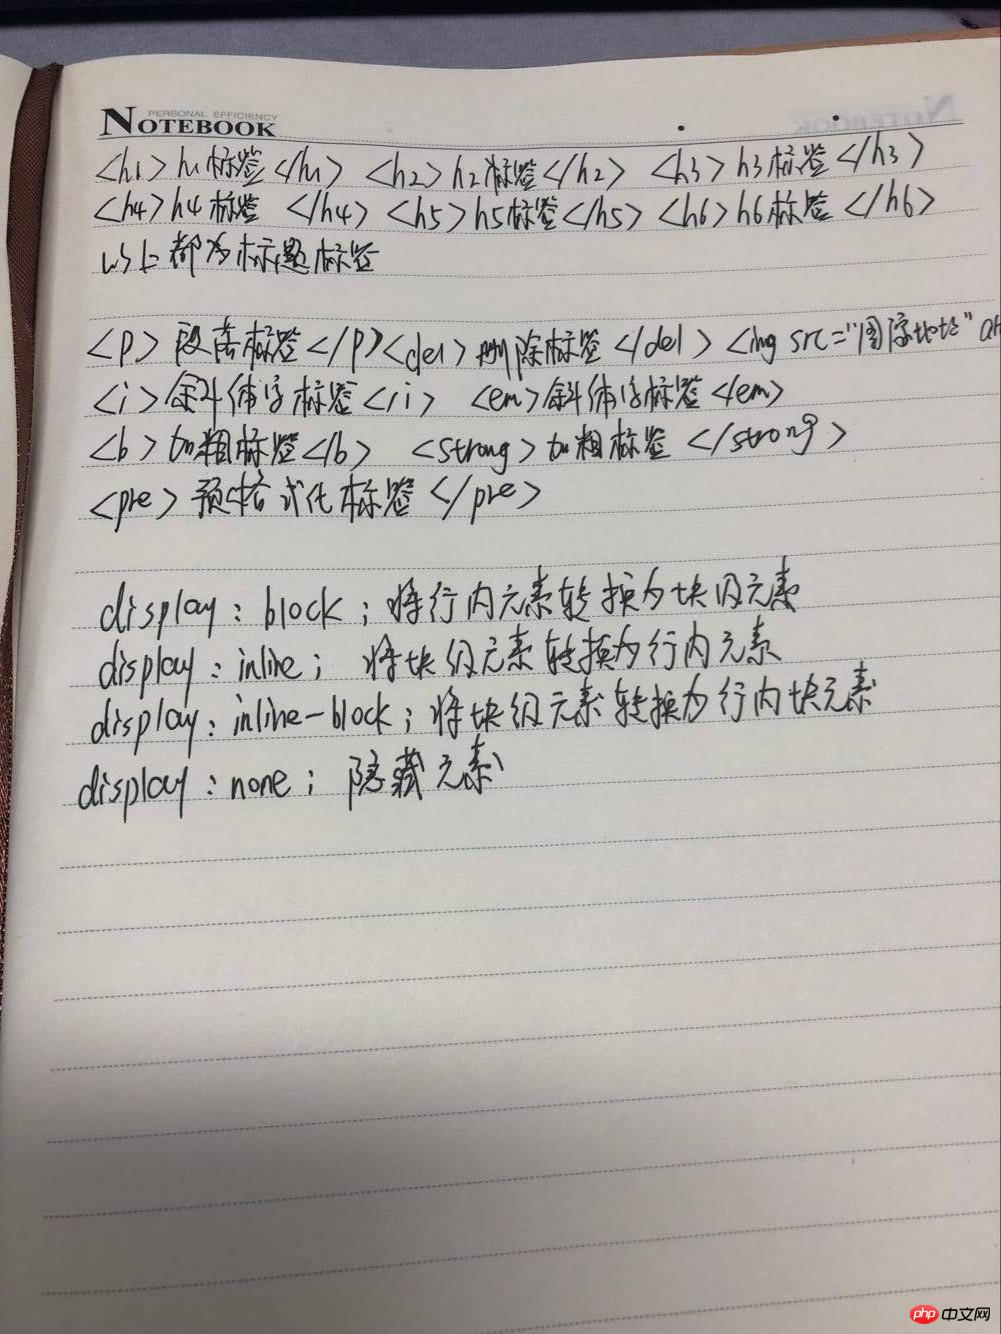 PERSONAL EFFICIENCY
NOTEBOOK
<h1> h1标签</h1> <h2>h2标签</h2> <h3>h3标签</h3>
<h4>h4标签 </h4> <h5>h5标签</h5> <h6>h6标签 </h6>
以上都为标题标签
<p> 段落标签</p><del>删除标签</del> <img src="图像地址" al
<i>斜体字标签</i> <em>斜体字标签</em>
<b>加粗标签</b> <strong>加粗标签</strong>
<pre>预格式化标签</pre>
display: block; 将行内元素转换为块级元素
display: inline; 将块级元素转换为行内元素
display: inline-block; 将块级元素转换为行内块元素
display: none; 隐藏元素
php 中文网